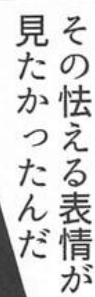 その怯える表情が
見たかったんだ